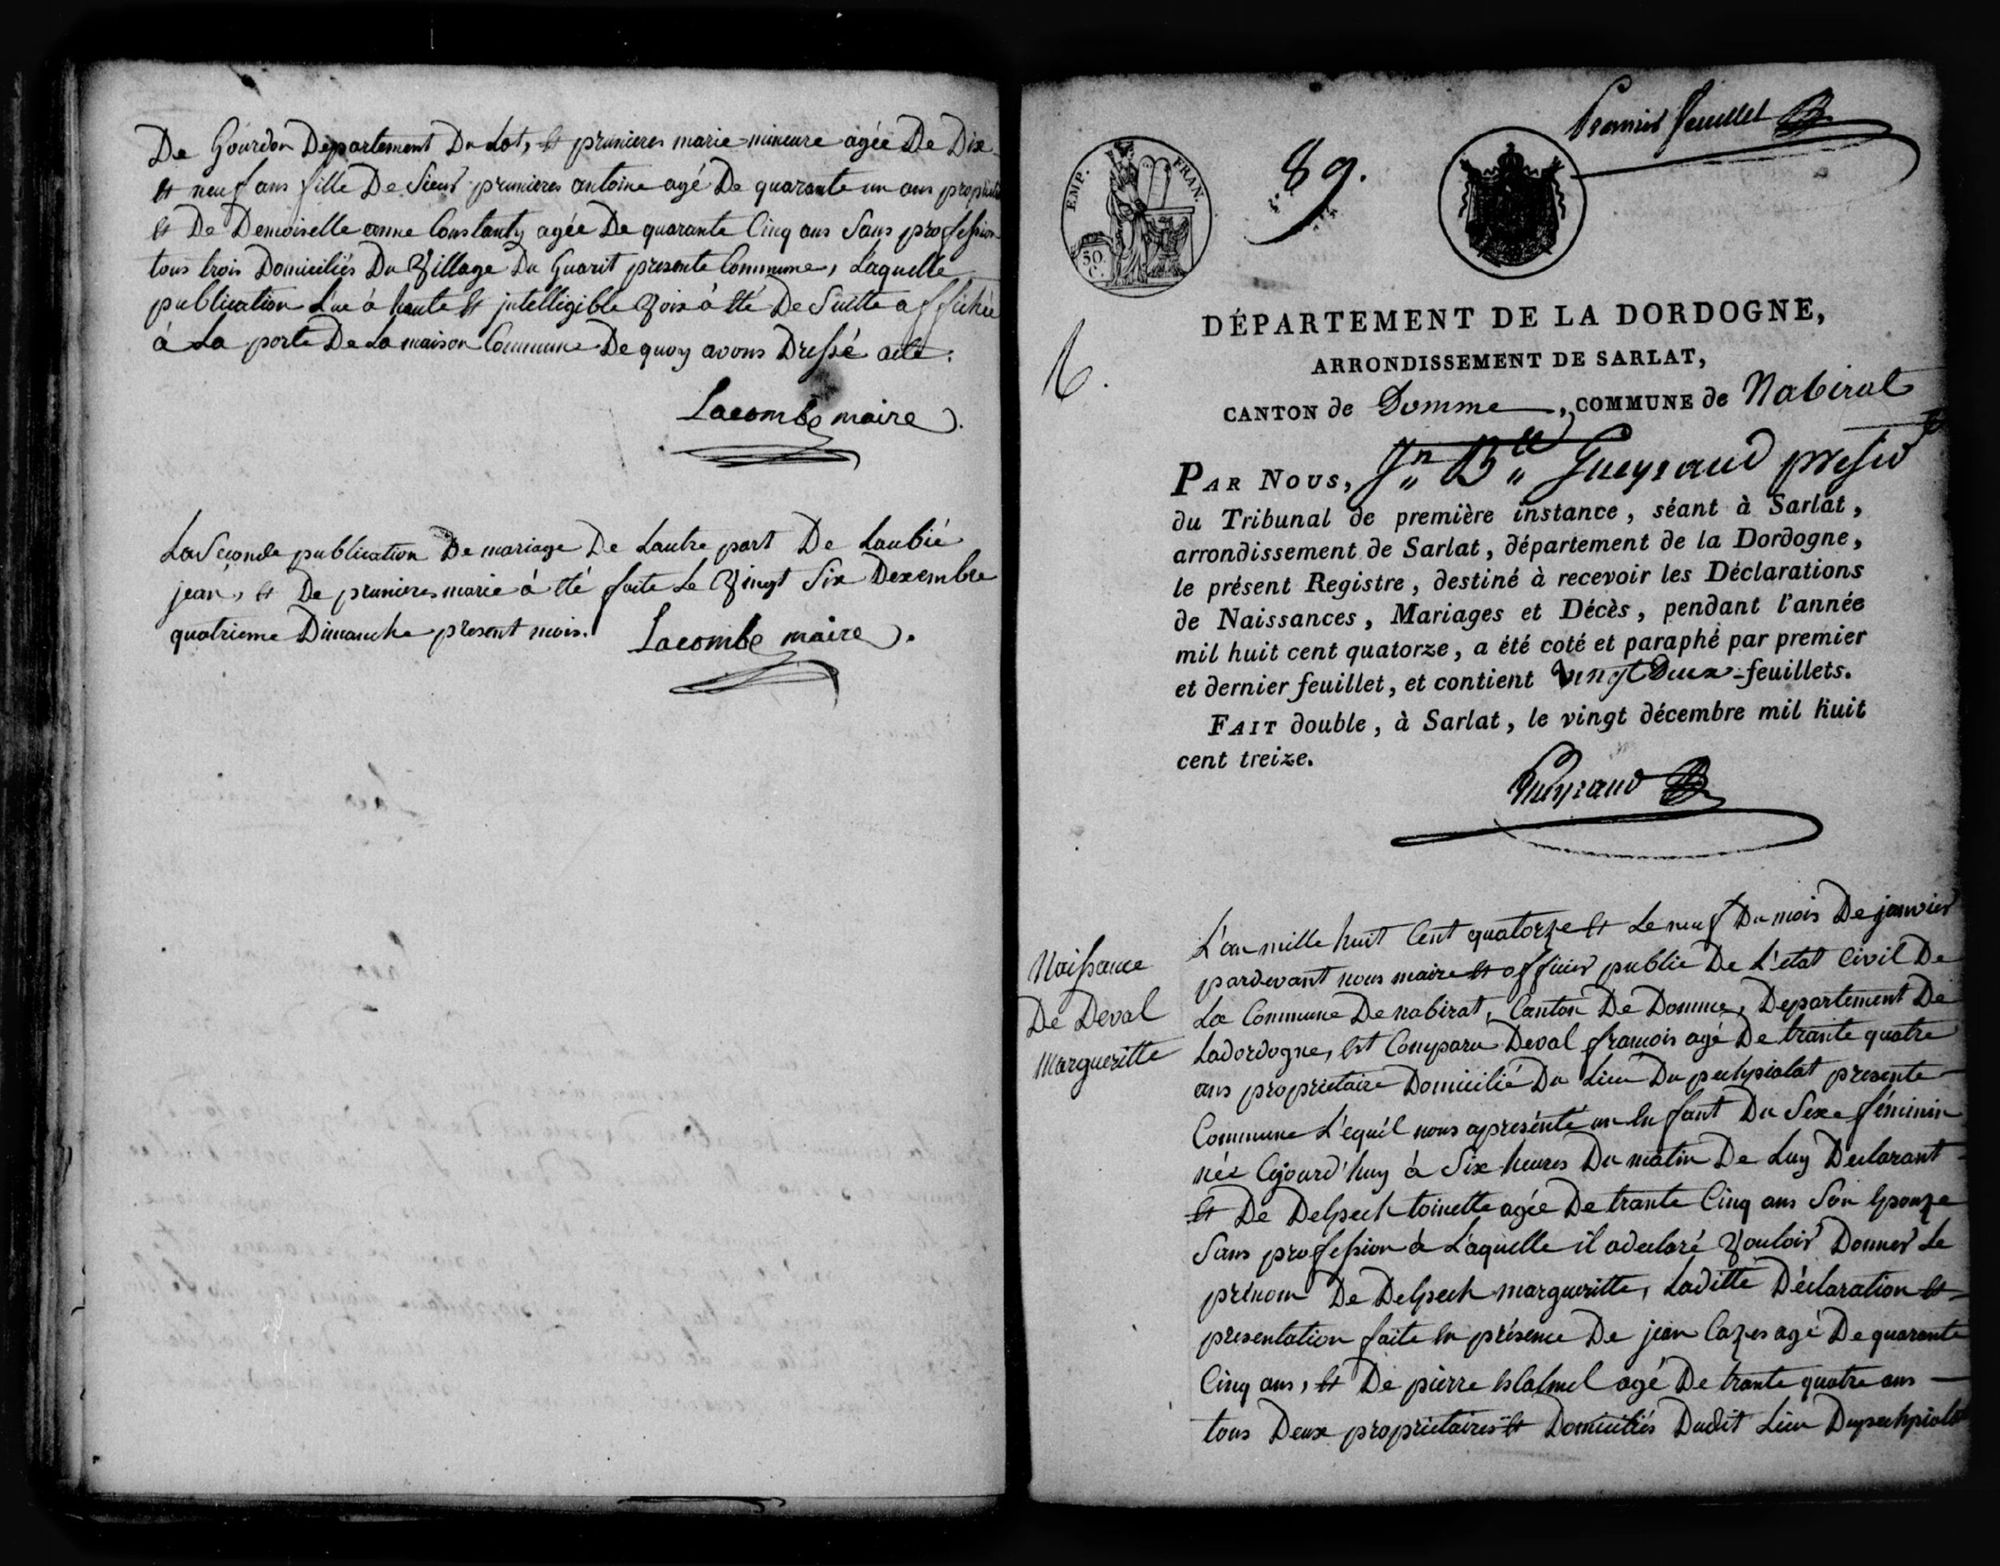 De Gourdon Departement Du Lot, et prunieres marie mineure agée De Dix
et neuf ans fille De Sieur prunieres antoine agé De quarante un ans proprietaire
et De Demoiselle anne Constanty agée De quarante Cinq ans Sans profession
tous trois Domiciliés Du Village Du Guarit presente Commune, Laquelle
publication Lue à haute et intelligible Voix à été De Suitte affichée
à La porte De La maison Commune De quoy avons Dressé acte.
Lacombe maire.
La Seconde publication De mariage De Lautre part De Laubié
jean, et De prunieres marie à été faite Le Vingt Six Dexembre
quatrieme Dimanche present mois. Lacombe maire.
Premier feuillet
EMP. FRAN.
50. C.
89.
DÉPARTEMENT DE LA DORDOGNE,
ARRONDISSEMENT DE SARLAT,
CANTON de Domme, COMMUNE de Nabirat
PAR NOUS, Jn Bte Gueyraud presid
du Tribunal de première instance, séant à Sarlat,
arrondissement de Sarlat, département de la Dordogne,
le présent Registre, destiné à recevoir les Déclarations
de Naissances, Mariages et Décès, pendant l'année
mil huit cent quatorze, a été coté et paraphé par premier
et dernier feuillet, et contient vingt Deux feuillets.
FAIT double, à Sarlat, le vingt décembre mil huit
cent treize.
Gueyraud
Naissance
De Deval
Margueritte
L'an mille huit Cent quatorze et Le neuf Du mois De janvier
pardevant nous maire et officier public De L'etat Civil De
La Commune De nabirat, Canton De Domme, Departement De
Ladordogne, est Comparu Deval francois agé De trante quatre
ans proprietaire Domicilié Du Lieu Du pechpialat presente
Commune L'equél nous apresénté un Enfant Du Sexe féminin
née Cejourd'huy à Six heures Du matin De Luy Declarant
et De Delpech toinette agée De trante Cinq ans Son Epouze
Sans profession à Laquelle il adeclaré Vouloir Donner Le
prénom De Delpech margueritte, Laditte Déclaration et
presentation faite En présence De jean Cazes agé De quarante
Cinq ans, et De pierre agé De trante quatre ans
tous Deux proprietaires et Domiciliés Dudit Lieu Dupechpialat